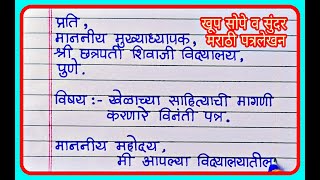 खूप सोपे व सुंदर
मराठी पत्रलेखन
प्रति,
माननीय मुख्याध्यापक,
श्री छत्रपती शिवाजी विद्यालय,
पुणे.
विषय :- खेळाच्या साहित्याची मागणी
करणारे विनंती पत्र.
माननीय महोदय,
मी आपल्या विद्यालयातील